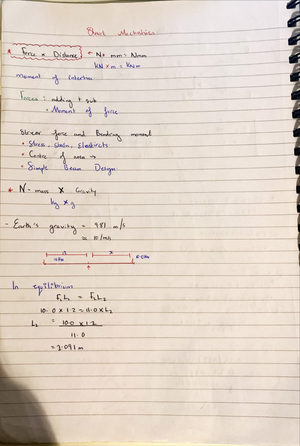 Struct Mechanics
* Force x Distance ← N x mm = Nmm
kN x m = kNm
moment of interties
Forces: adding + sub
• Moment of force
Shear force and Bending moment
• Stress, Strain, Elasticity
• Centre of area →
• Simple Beam Design
* N - mass x Gravity
kg x g
- Earth's gravity = 9.81 m/s
= 10 m/s
In equilibrium
F₁L₁ = F₂L₂
10.0 x 1.2 = 11.0 x L₂
L₂ = 10.0 x 1.2
11.0